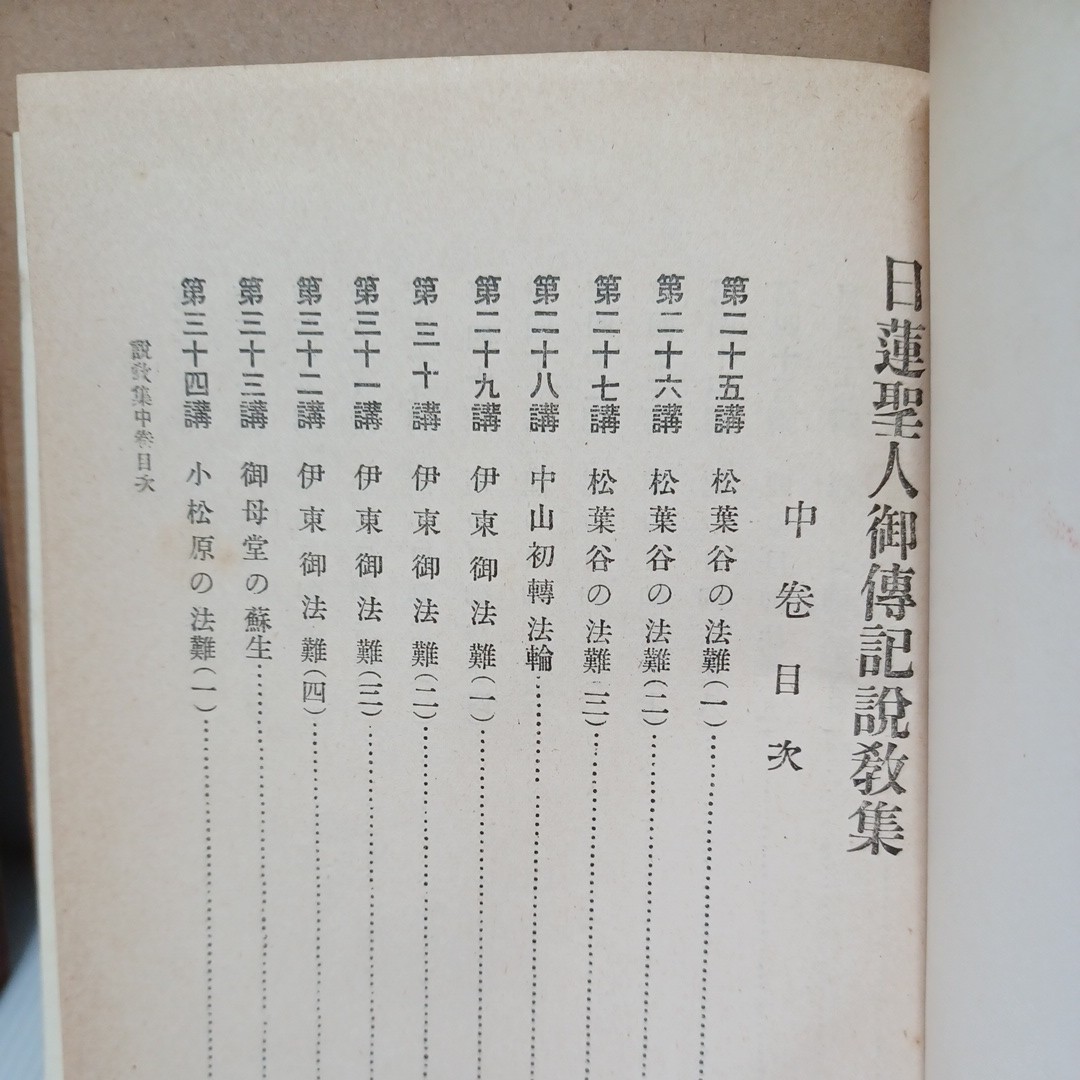 日蓮聖人御傳記說敎集
中卷目次
第二十五講 松葉谷の法難(一)
第二十六講 松葉谷の法難(二)
第二十七講 松葉谷の法難(三)
第二十八講 中山初轉法輪
第二十九講 伊東御法難(一)
第三十講 伊東御法難(二)
第三十一講 伊東御法難(三)
第三十二講 伊東御法難(四)
第三十三講 御母堂の蘇生
第三十四講 小松原の法難(一)
說敎集中卷目次